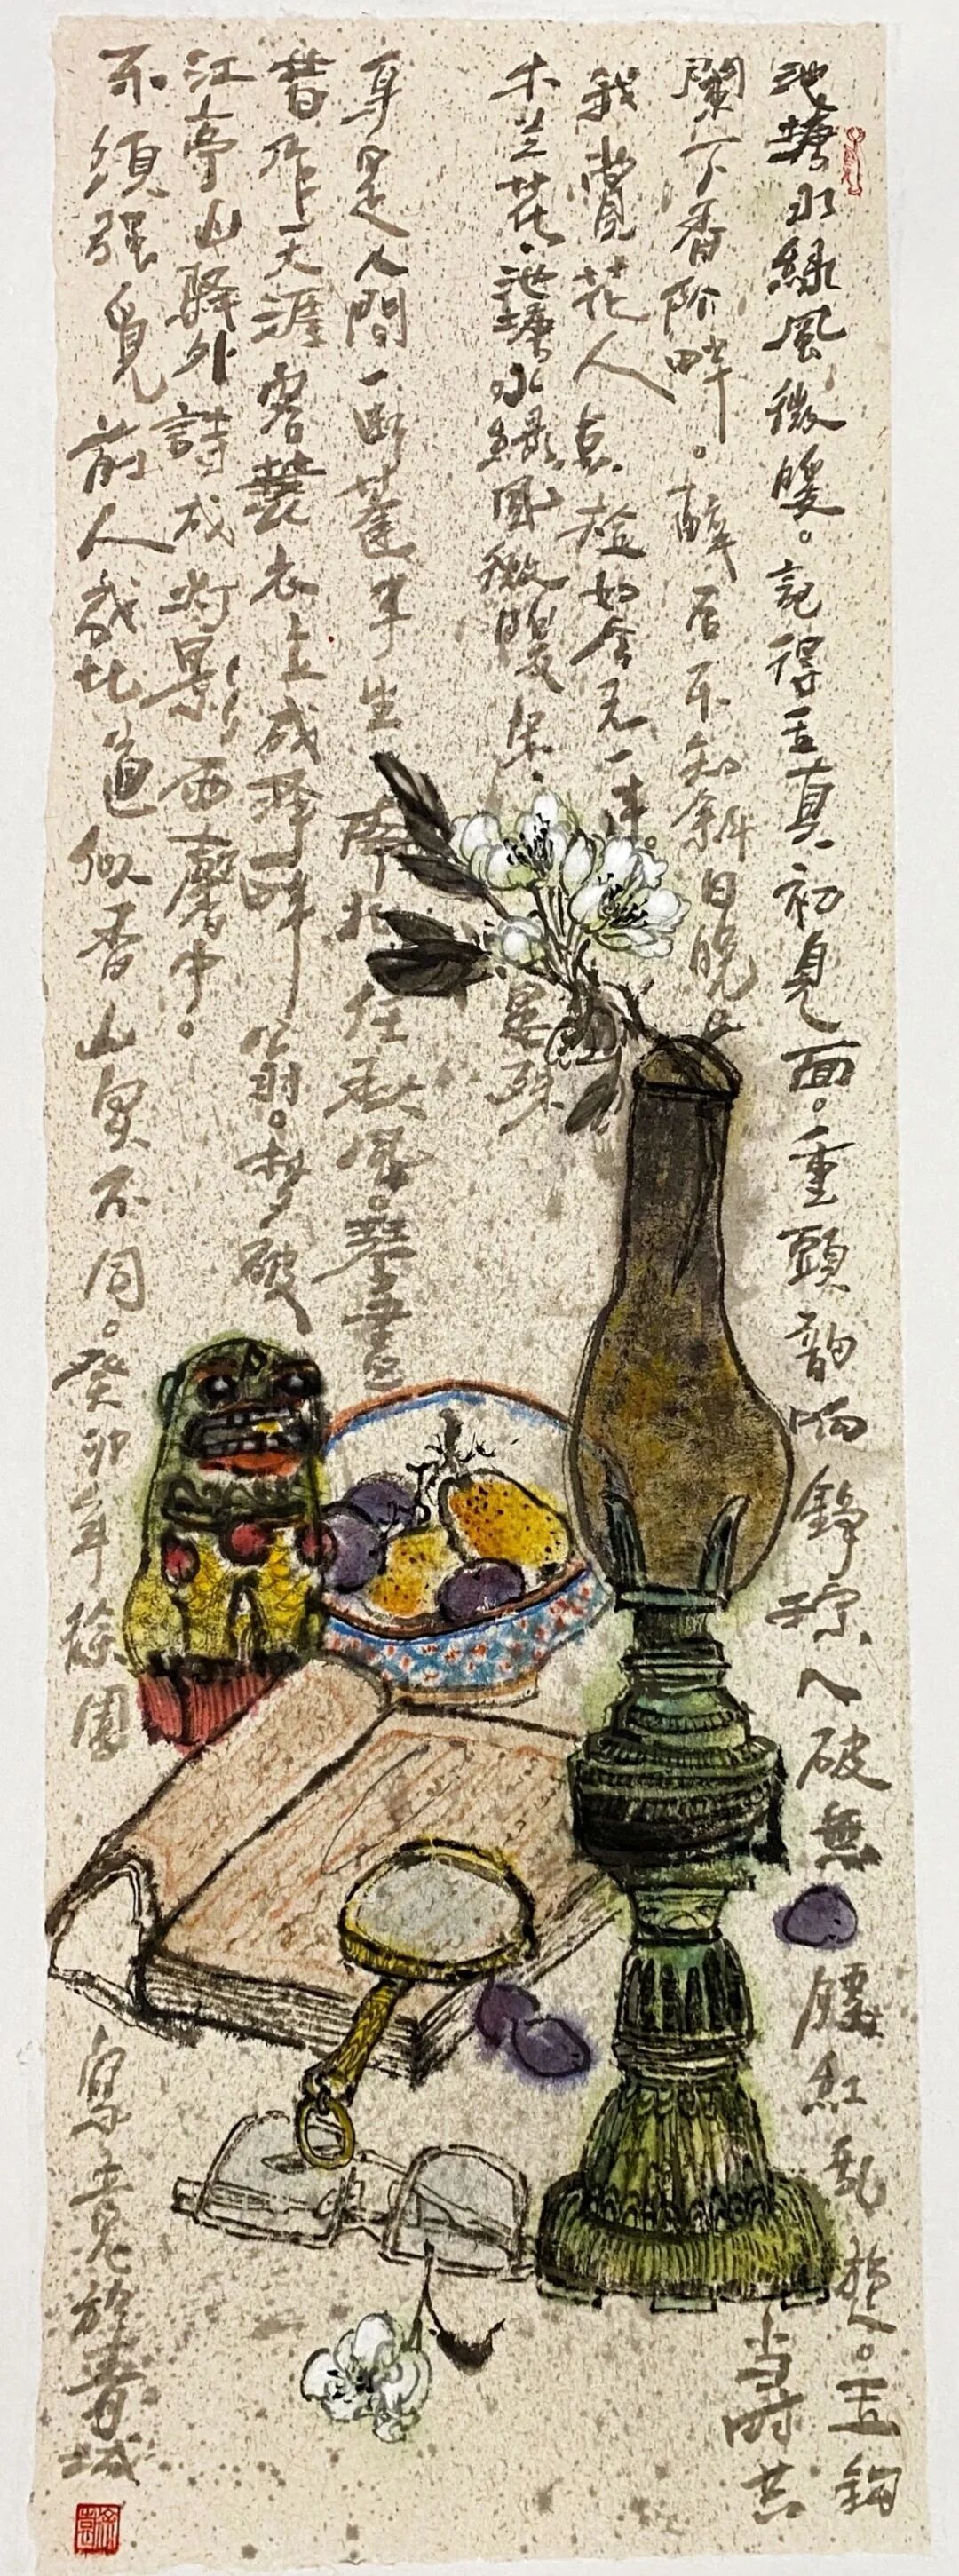 池塘水緑風微暖。記得玉真初見面。重頭韻响錚琮入破無腰紅乱旋。玉鈎
闌下香阶畔。醉后不知斜日晚。当時共
我賞花人点检如今无一半。
木兰花·池塘水緑風微暖 宋·晏殊
身是人間一断蓬半生南北任秋風。琴書
昔作天涯客蓑衣今成澤畔翁。梦破
江亭山驛外詩成灯影雨声中。
不須强覓前人比道似香山实不同。癸卯年徐園寫於青城